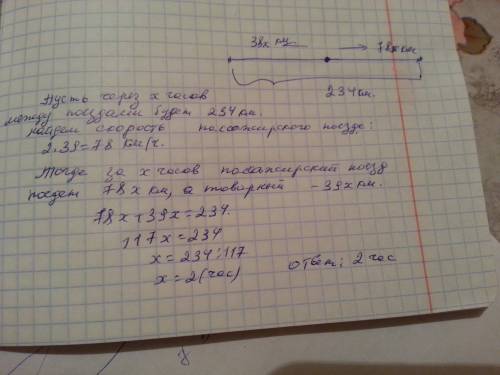 38х км 78х км
234 км.
Пусть через х часов
между поездами будет 234 км.
Найдем скорость пассажирского поезда:
2.39=78 км/ч.
Тогда за х часов пассажирский поезд
поедет 78х км, а товарный - 39х км.
78х+39х=234.
117х=234
х=234:117
х=2(час)
ответ: 2 час